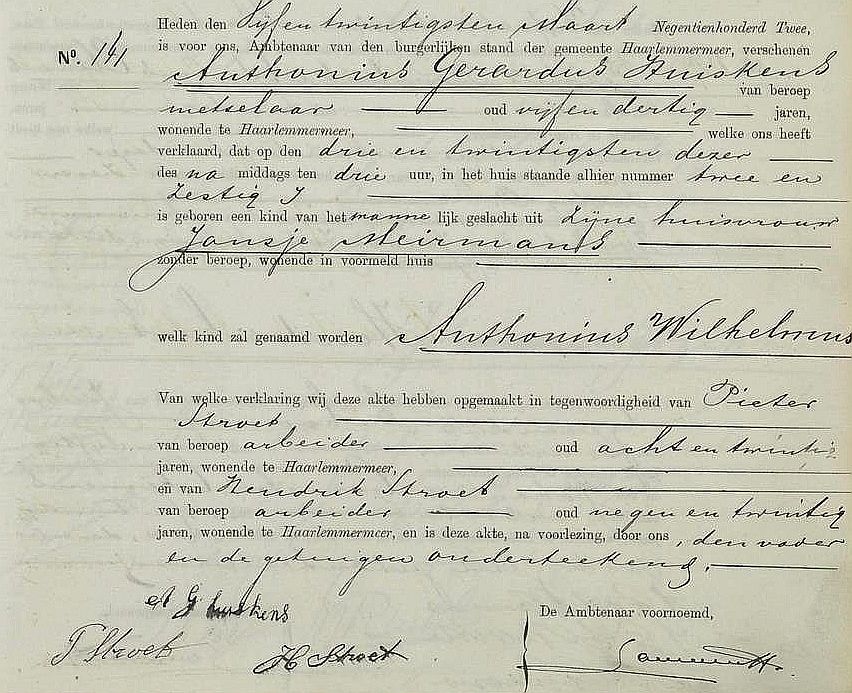 Heden den Vijf en twintigsten Maart Negentienhonderd Twee,
is voor ons, Ambtenaar van den burgerlijken stand der gemeente Haarlemmermeer, verschenen
No. 141
Anthonius Gerardus Huiskens
van beroep
metselaar oud vijf en dertig jaren,
wonende te Haarlemmermeer, welke ons heeft
verklaard, dat op den drie en twintigsten dezer
des na middags ten drie uur, in het huis staande alhier nummer twee en
zestig J
is geboren een kind van het manne lijk geslacht uit zijne huisvrouw
Jansje Meirmans
zonder beroep, wonende in voormeld huis
welk kind zal genaamd worden Anthonius Wilhelmus
Van welke verklaring wij deze akte hebben opgemaakt in tegenwoordigheid van Pieter
Stroet
van beroep arbeider oud acht en twintig
jaren, wonende te Haarlemmermeer,
en van Hendrik Stroet
van beroep arbeider oud negen en twintig
jaren, wonende te Haarlemmermeer, en is deze akte, na voorlezing, door ons, den vader
en de getuigen onderteekend.
G Huiskens
De Ambtenaar voornoemd,
P Stroet H Stroet